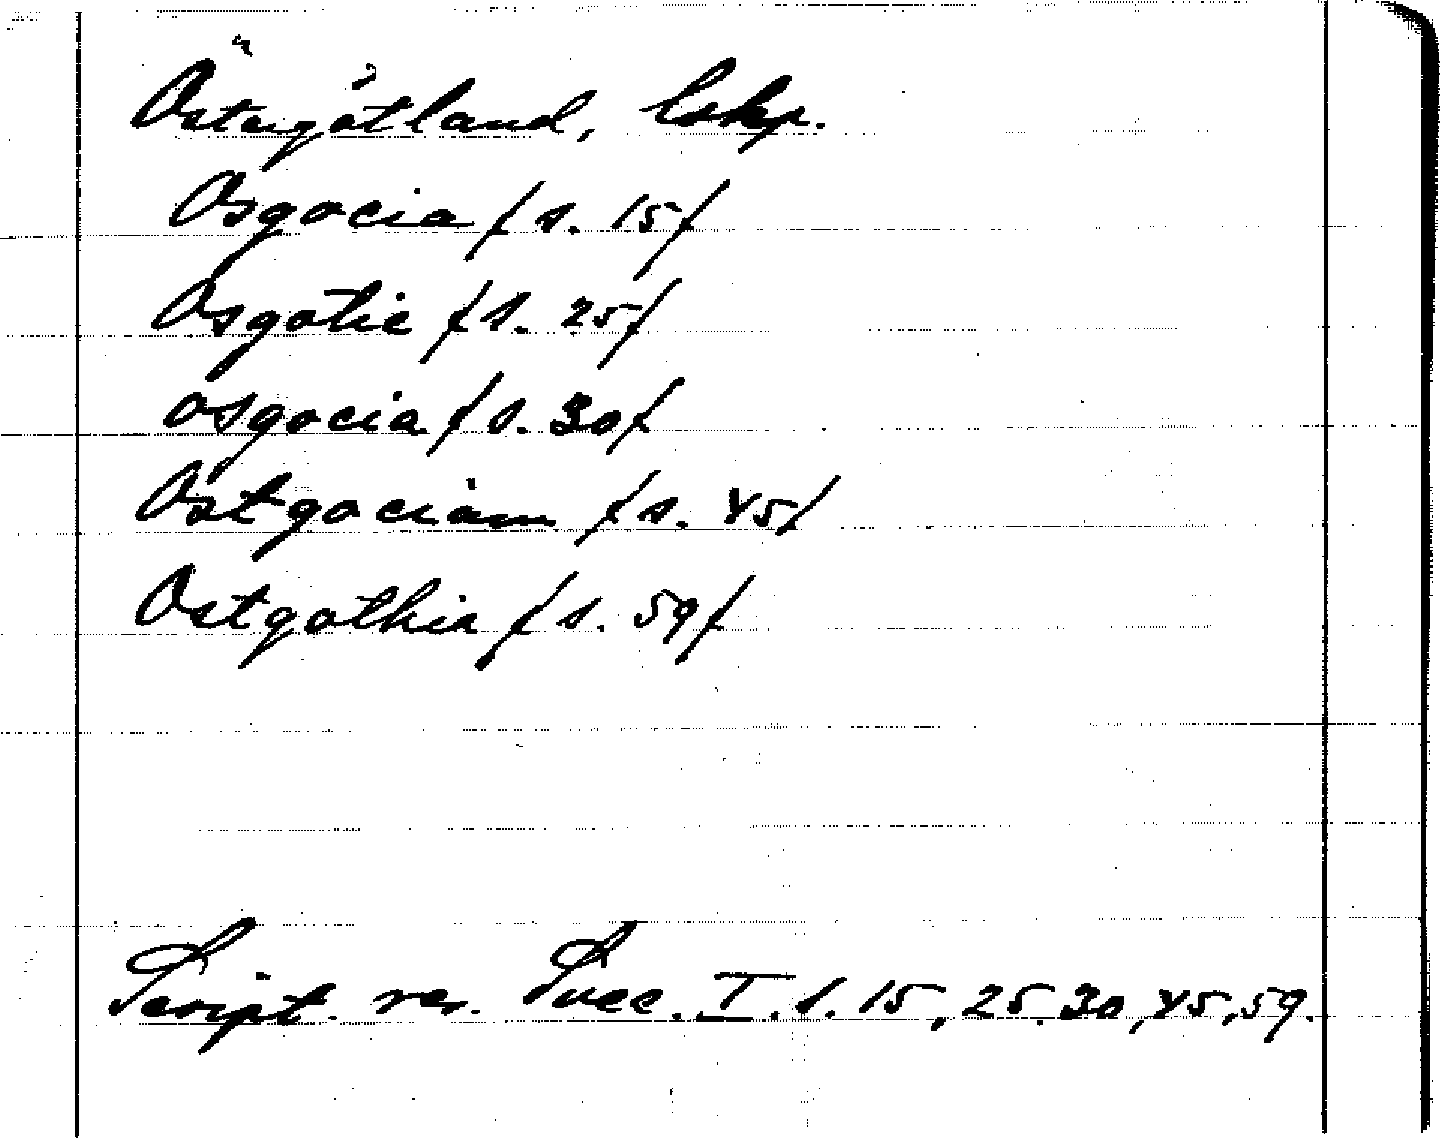 Östergötland, lskp.
Osgocia /s. 15/
Osgotie /s. 25/
osgocia /s. 30/
Ostgociam /s. 45/
Ostgothia /s. 59/
Script. rer. Svec. I. s. 15, 25, 30, 45, 59.